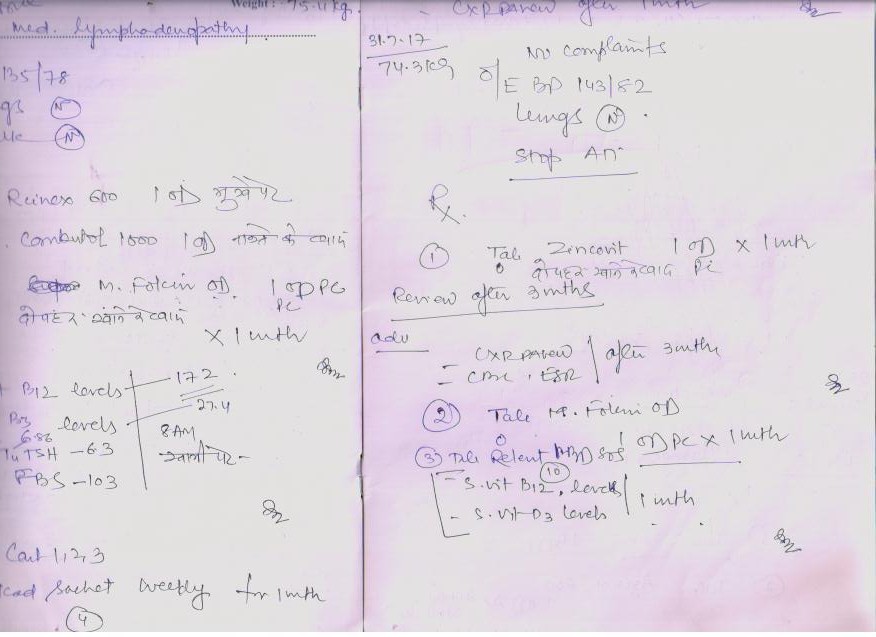 Weight: 75.4 kg.
med. lymphadenopathy
135/78
gs N
N
Reinex 600 1 OD भूखे पेट
Combutol 1000 1 OD नाश्ते के बाद
M. Folcin OD. 1 OD PC
PC
दोपहर खाने के बाद
X 1 mth
B12 levels - 172
levels - 27.4
6.86
TSH - 6.3
8 AM
खाली पेट -
FBS - 103
Cont 1, 2, 3
sachet weekly for 1 mth
4
CXR PA view after 1 mth
31.7.17
74.3 kg
No complaints
O/E BP 143/82
Lungs N.
Stop
Rx.
1 Tab Zincovit 1 OD X 1 mth
दोपहर खाने के बाद PC
Review after 3 mths
adv
CXR PA view
CBC, ESR
after 3 mths
2 Tab M. Folcin OD
1 OD PC X 1 mth
3 Tab
10
- S. vit B12, levels
- S. vit D3 levels
1 mth